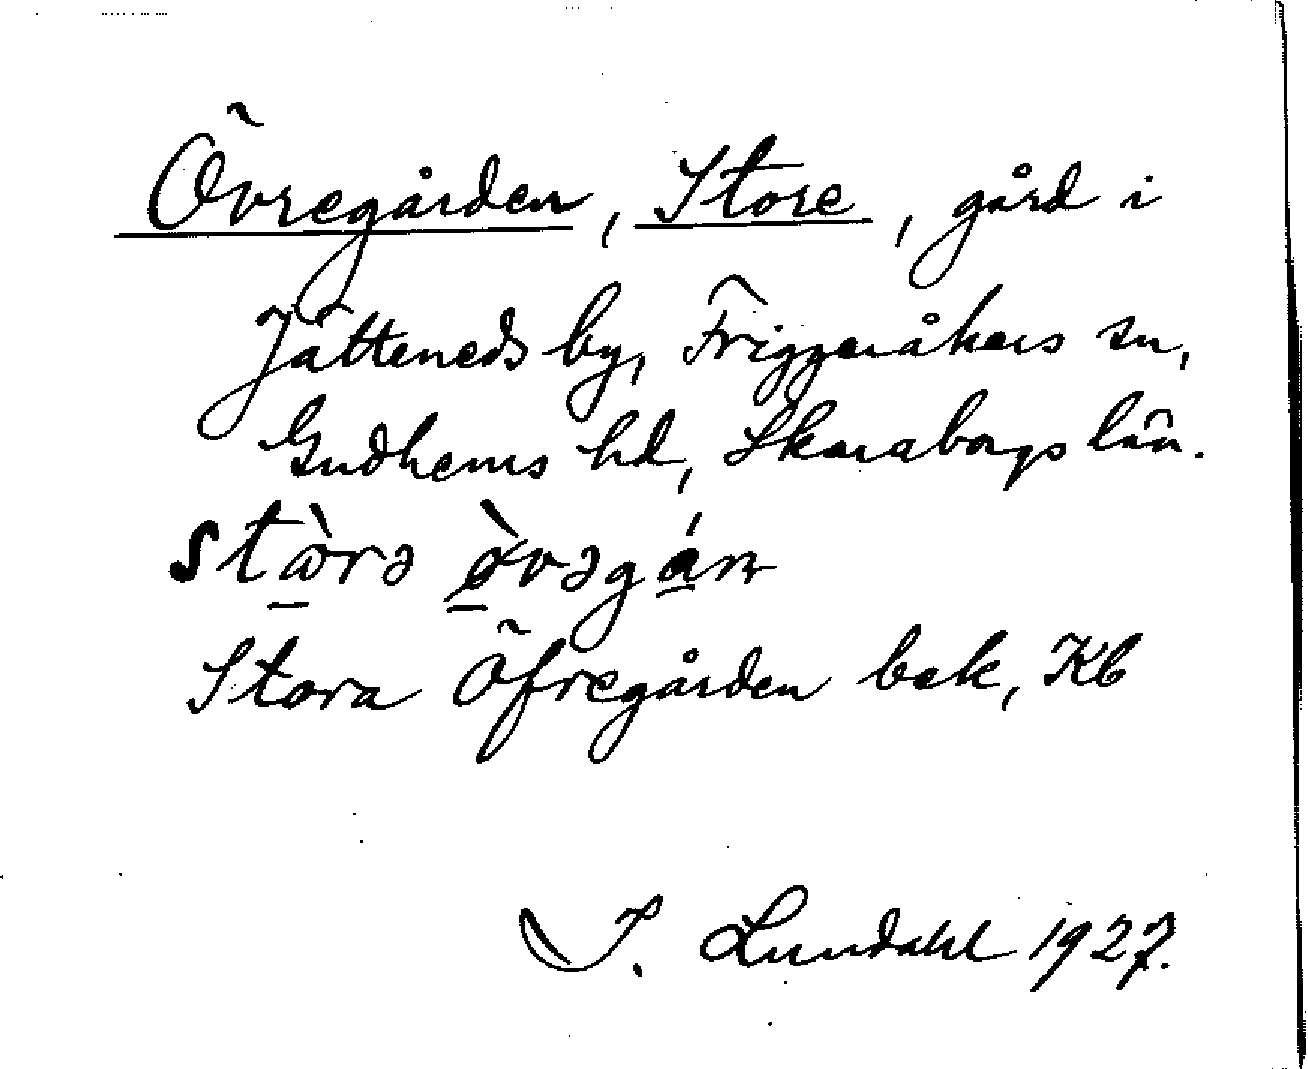 Övregården, Store, gård i
Jätteneds by, Friggeråkers sn,
Gudhems hd, Skaraborgs län.
stɷ̀rə ø̀vəgán
Stora Öfregården bek, Kb
I. Lundahl 1927.